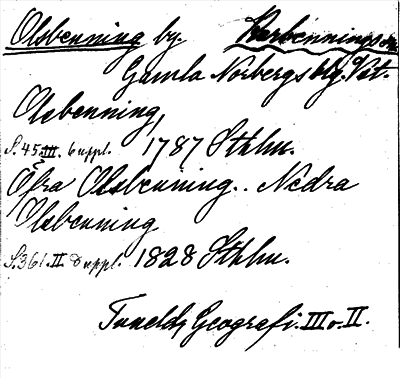 Olsbenning by. Karbennings sn
Gamla Norbergs blg. Vst.
Olsbenning,
S. 45. III. 6 uppl. 1787 Sthlm.
Öfra Olsbenning.. Nedra
Olsbenning
S. 361. II. 8 uppl. 1828 Sthlm.
Tunelds Geografi. III o. II.